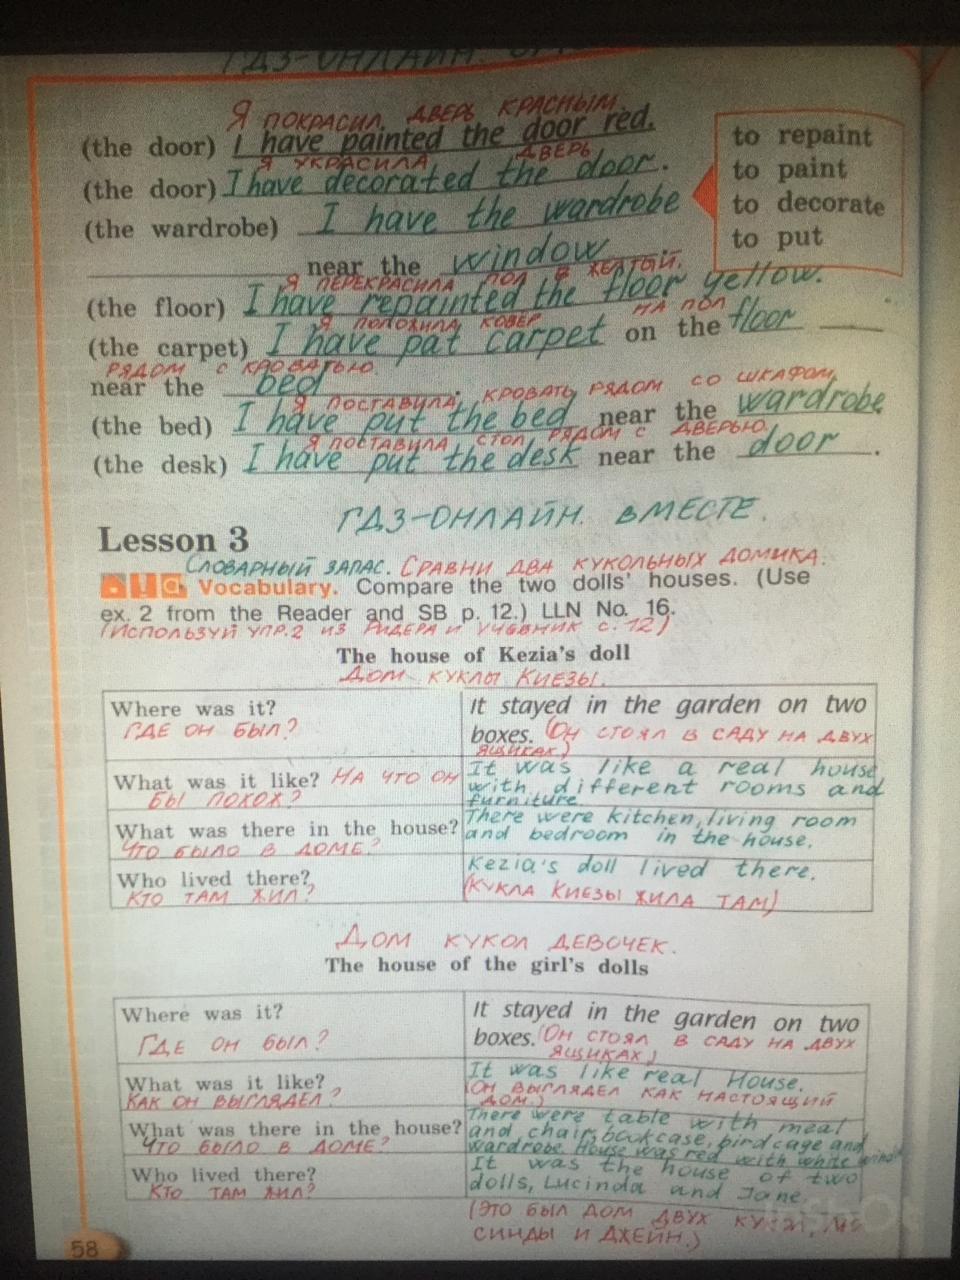 ГДЗ-ОНЛАЙН.
Я ПОКРАСИЛ ДВЕРЬ КРАСНЫМ.
(the door) I have painted the door red.
Я УКРАСИЛА ДВЕРЬ
(the door) I have decorated the door.
(the wardrobe) I have the wardrobe
near the window
Я ПЕРЕКРАСИЛА ПОЛ В ЖЕЛТЫЙ.
(the floor) I have repainted the floor yellow.
Я ПОЛОЖИЛА КОВЕР НА ПОЛ
(the carpet) I have pat carpet on the floor
РЯДОМ С КРОВАТЬЮ.
near the bed.
Я ПОСТАВИЛА КРОВАТЬ РЯДОМ СО ШКАФОМ
(the bed) I have put the bed near the wardrobe
Я ПОСТАВИЛА СТОЛ РЯДОМ С ДВЕРЬЮ.
(the desk) I have put the desk near the door.
to repaint
to paint
to decorate
to put
ГДЗ-ОНЛАЙН. ВМЕСТЕ.
Lesson 3
СЛОВАРНЫЙ ЗАПАС. СРАВНИ ДВА КУКОЛЬНЫХ ДОМИКА.
Vocabulary. Compare the two dolls' houses. (Use
ex. 2 from the Reader and SB p. 12.) LLN No. 16.
(ИСПОЛЬЗУЙ УПР.2 ИЗ РИДЕРА И УЧЕБНИК С.12)
The house of Kezia's doll
ДОМ КУКЛЫ КИЕЗЫ.
Where was it?
ГДЕ ОН БЫЛ?
It stayed in the garden on two
boxes. (ОН СТОЯЛ В САДУ НА ДВУХ
ЯЩИКАХ)
What was it like? НА ЧТО ОН
БЫЛ ПОХОЖ?
It was like a real house
with different rooms and
furniture.
What was there in the house?
ЧТО БЫЛО В ДОМЕ?
There were kitchen, living room
and bedroom in the house.
Who lived there?
КТО ТАМ ЖИЛ?
Kezia's doll lived there.
(КУКЛА КИЕЗЫ ЖИЛА ТАМ)
ДОМ КУКОЛ ДЕВОЧЕК.
The house of the girl's dolls
Where was it?
ГДЕ ОН БЫЛ?
It stayed in the garden on two
boxes. (ОН СТОЯЛ В САДУ НА ДВУХ
ЯЩИКАХ)
What was it like?
КАК ОН ВЫГЛЯДЕЛ?
It was like real House.
(ОН ВЫГЛЯДЕЛ КАК НАСТОЯЩИЙ
ДОМ.)
What was there in the house?
ЧТО БЫЛО В ДОМЕ?
There were table with meal
and chairs, bookcase, bird cage and
wardrobe. House was red with white
Who lived there?
КТО ТАМ ЖИЛ?
It was the house of two
dolls, Lucinda and Jane.
(ЭТО БЫЛ ДОМ ДВУХ КУКОЛ,
СИНДЫ И ДЖЕЙН.)
58